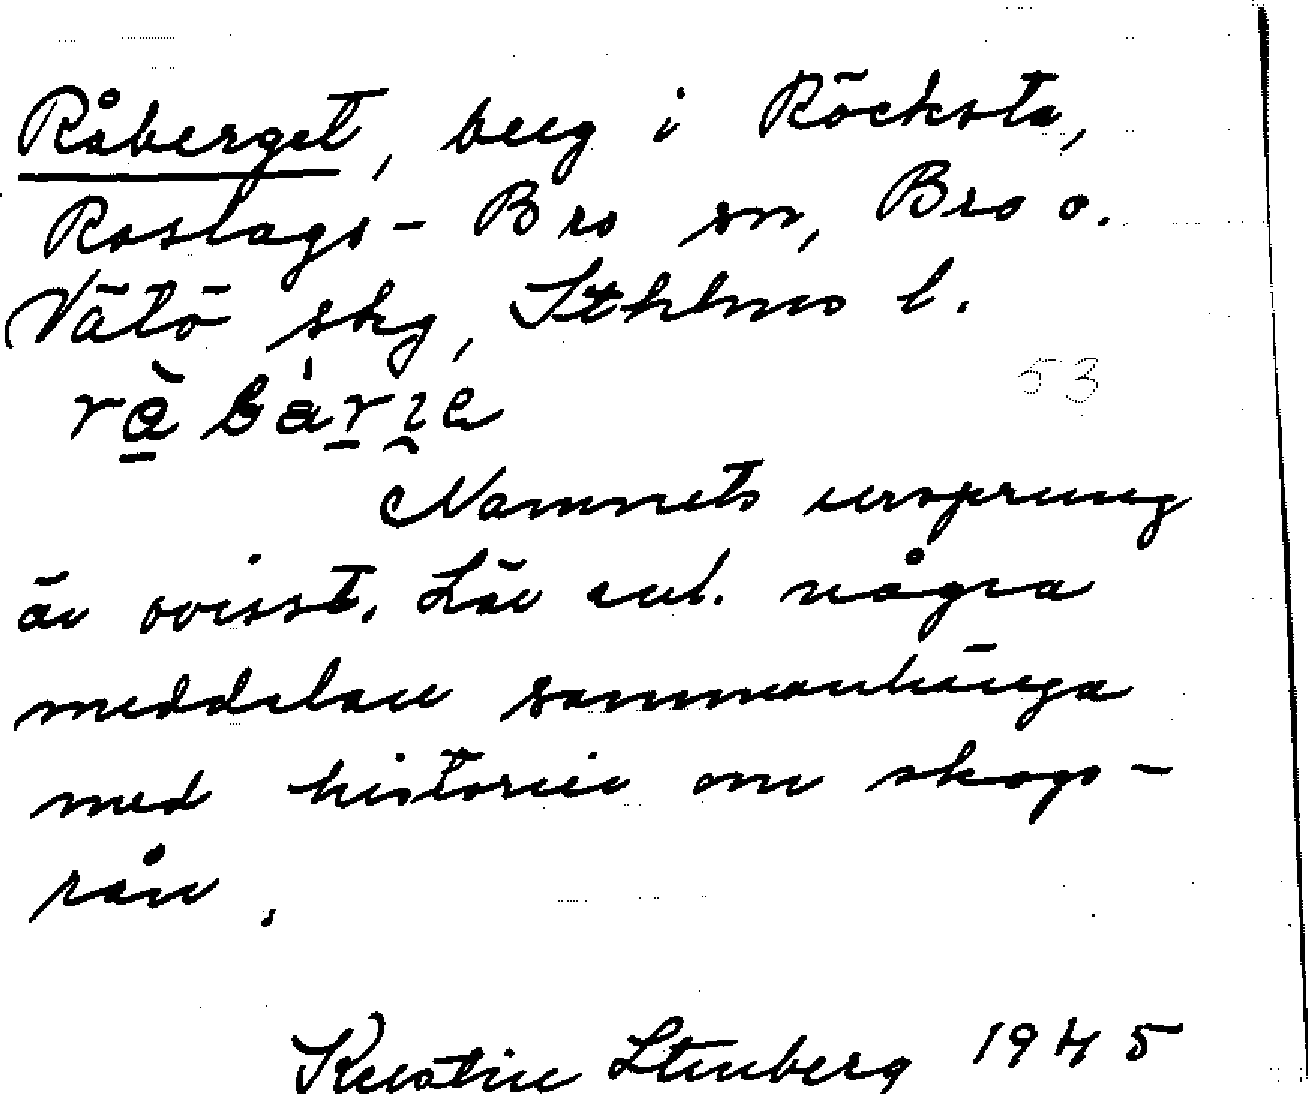 Råberget, berg i Röcksta,
Roslags-Bro sn, Bro o.
Vätö skg, Sthlms l.
53
Namnets ursprung
är ovisst. Lär enl. några
meddelare sammanhänga
med historier om skogs-
rån.
Kerstin Stenberg 1945